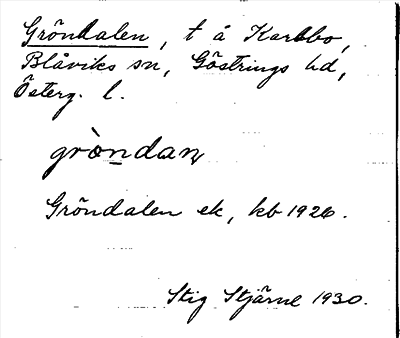 Gröndalen, t å Karlsbo,
Blåviks sn, Göstrings hd,
Österg. l.
gròndan
Gröndalen ek, kb 1926.
Stig Stjärne 1930.